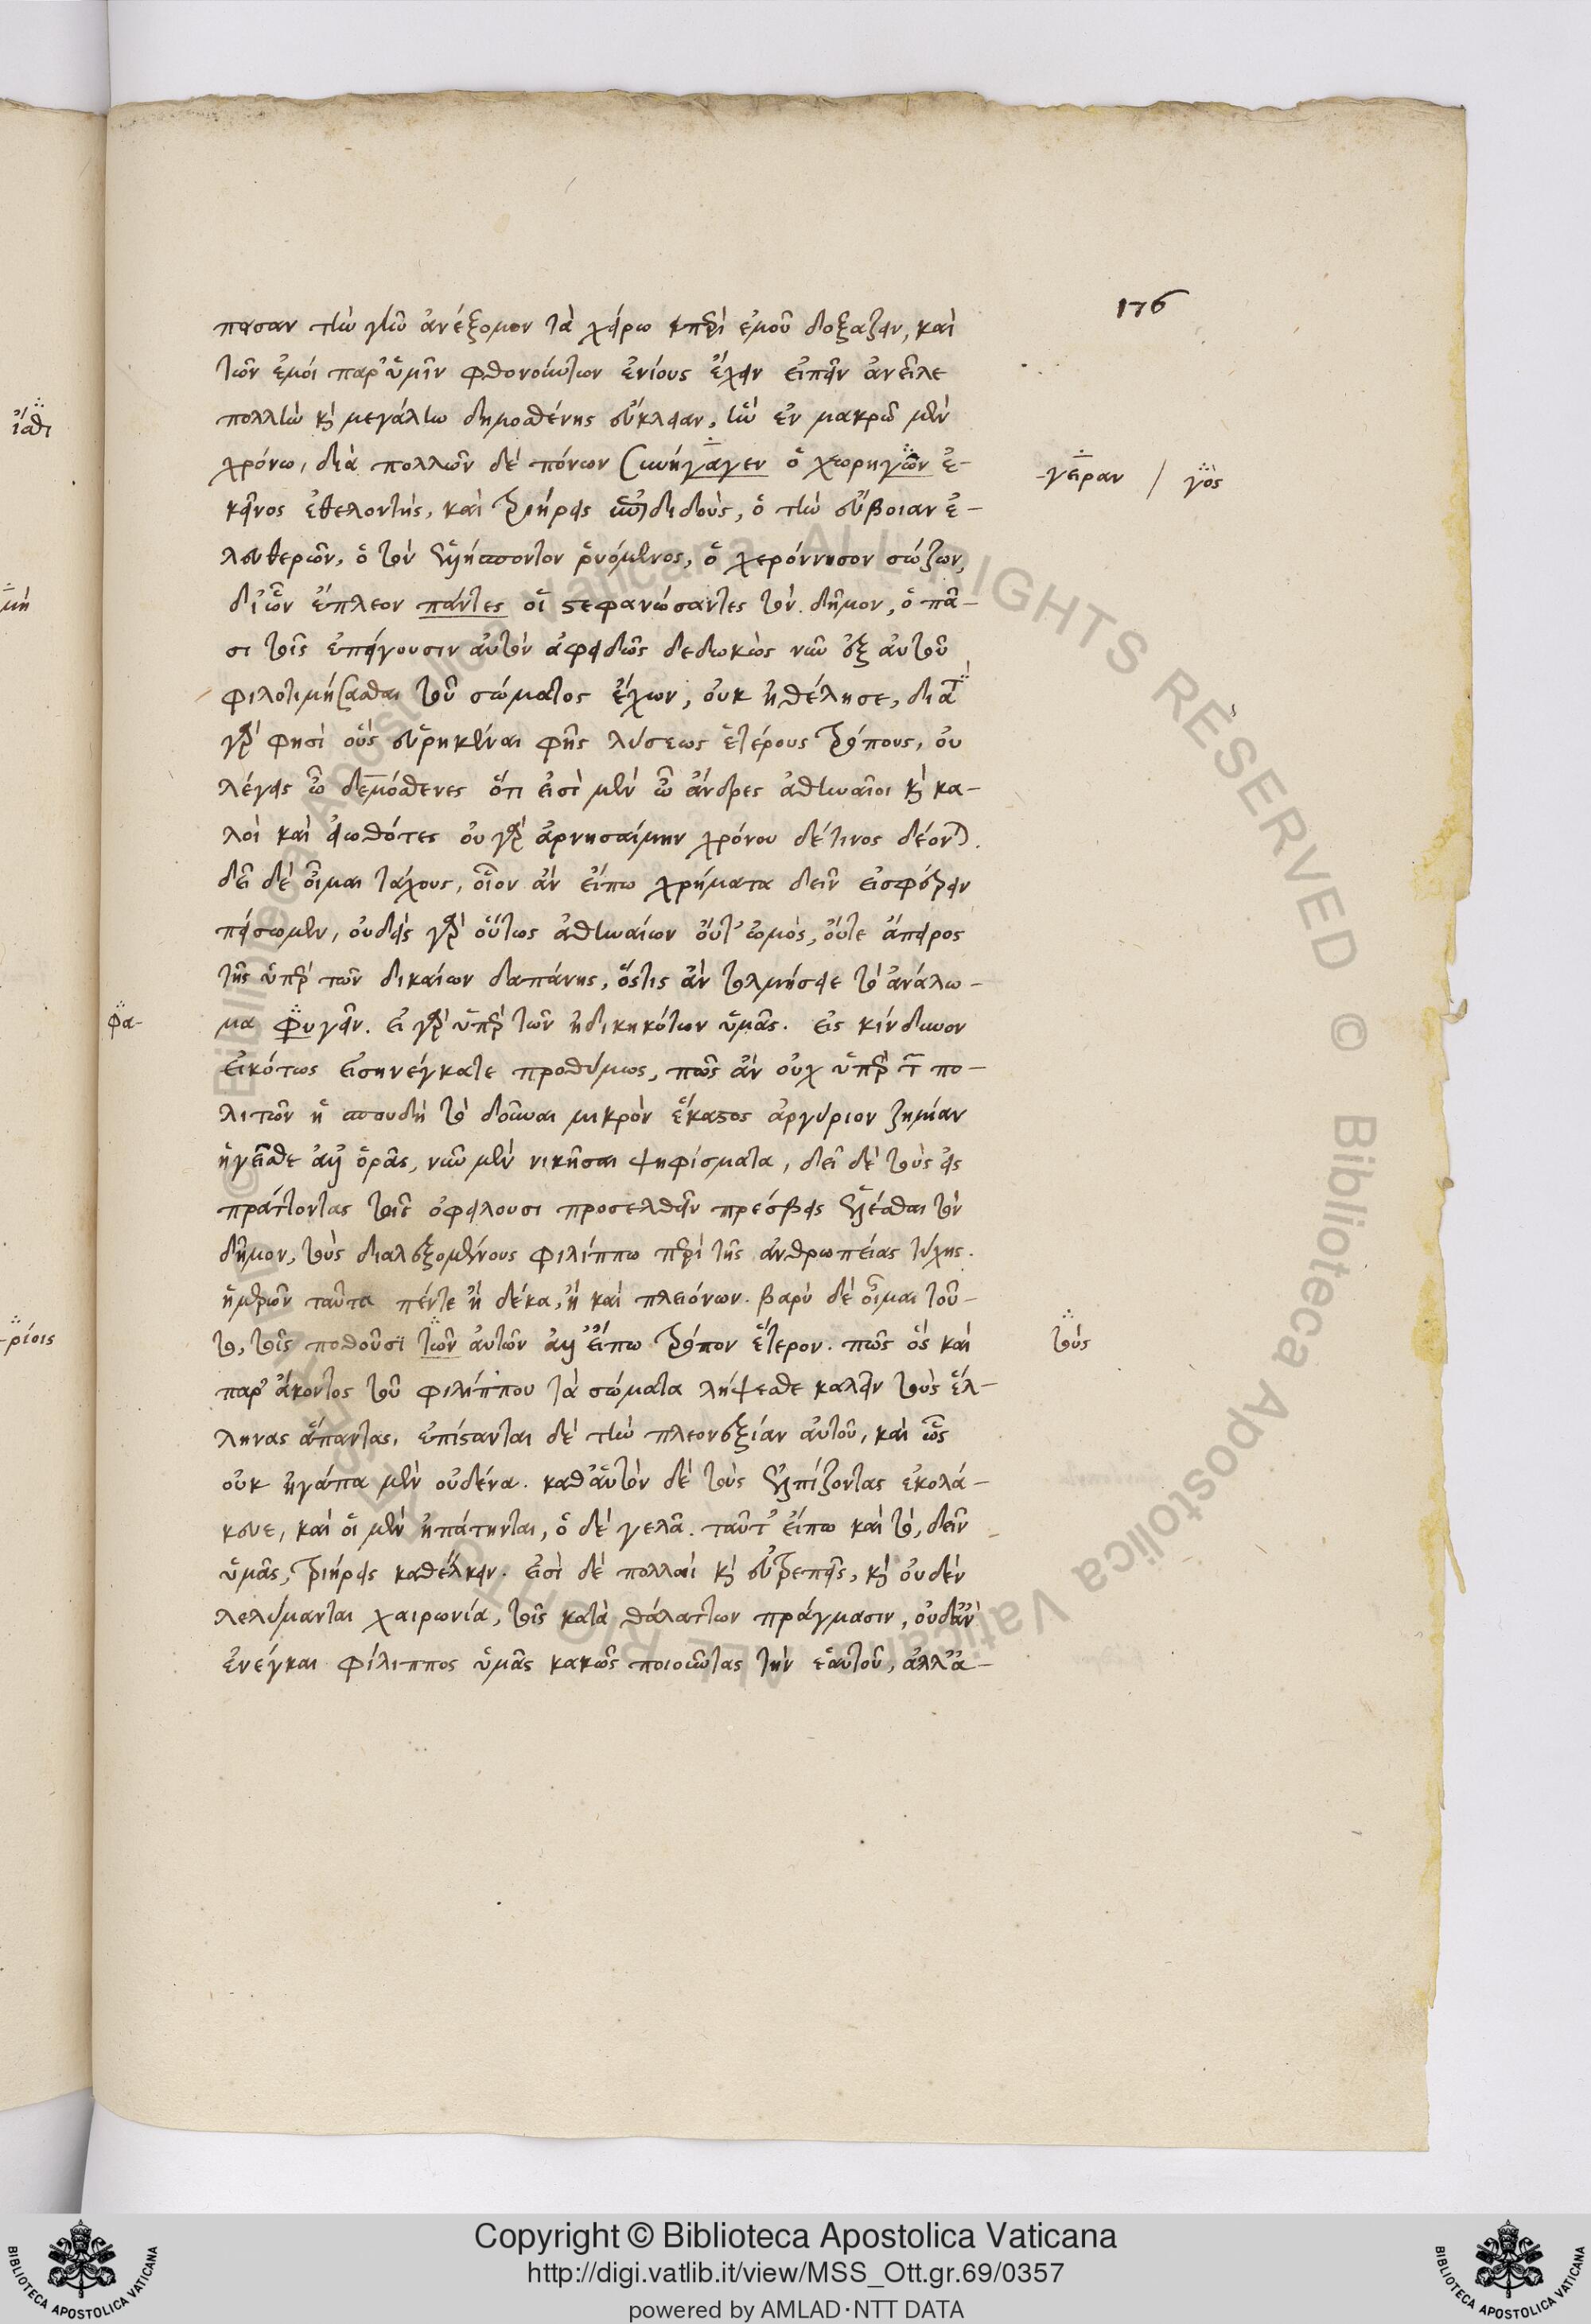 176
πασαν τὴν γῆν ἀνέξομαι τὰ χείρω περὶ ἐμοῦ δοξάζειν, καὶ
τῶν ἐμοὶ παρ' ὑμῖν φθονούντων ἐνίους ἔχειν εἰπεῖν ἀνεῖλε
πολλὴν καὶ μεγάλην δημοσθένης εὔκλειαν, ἣν ἐν μακρῶ μὲν
χρόνω, διὰ πολλῶν δὲ πόνων συνήγαγεν ὁ χωρηγῶν ἐ-
-γεῖραν / γὸς
κεῖνος ἐθελοντὴς, καὶ τριήρεις ἐπιδιδοὺς, ὁ τὴν εὔβοιαν ἐ-
λευθερῶν, ὁ τὸν ἑλλήσποντον ῥυόμενος, ὁ χερόννησον σώζων,
δι' ὧν ἔπλεον πάντες οἱ στεφανώσαντες τὸν δῆμον, ὁ πᾶ-
σι τοῖς ἐπείγουσιν αὑτὸν ἀφειδῶς δεδωκὼς νῦν ἐξ αὐτοῦ
φιλοτιμήσασθαι τοῦ σώματος ἔχων, οὐκ ἠθέλησε, διατὶ
γὰρ φησὶ οὓς εὑρηκέναι φῂς λύσεως ἑτέρους τρόπους, οὐ
λέγεις ὦ δεμόσθενες ὅτι εἰσὶ μὲν ὦ ἄνδρες ἀθηναῖοι καὶ κα-
λοὶ καὶ εἰωθότες οὐ γὰρ ἀρνησαίμην χρόνου δέ τινος δέονται.
δεῖ δὲ οἶμαι τάχους, οἷον ἂν εἴπω χρήματα δεῖν εἰσφέρειν
πείσωμεν, οὐδεὶς γὰρ οὕτως ἀθηναίων οὔτ' ὠμὸς, οὔτε ἄπειρος
τῆς ὑπὲρ τῶν δικαίων δαπάνης, ὅστις ἂν τολμήσειε τὸ ἀνάλω-
φα-
μα φυγεῖν. εἰ γὰρ ὑπὲρ τῶν ἠδικηκότων ὑμᾶς. εἰς κίνδυνον
εἰκότως εἰσηνέγκατε προθύμως, πῶς ἂν οὐχ ὑπὲρ τῶν πο-
λιτῶν ἡ σπουδὴ τὸ δοῦναι μικρὸν ἕκαστος ἀργύριον ζημίαν
ἡγεῖσθε ἂν ὁρᾶς, νῦν μὲν νικῆσαι ψηφίσματα, δεῖ δὲ τοὺς εἰς
πράττοντας τοῖς ὀφείλουσι προσελθεῖν πρέσβεις ἑλέσθαι τὸν
δῆμον, τοὺς διαλεξομένους φιλίππω περὶ τῆς ἀνθρωπείας τύχης.
ἡμερῶν ταῦτα πέντε ἢ δέκα, ἢ καὶ πλειόνων. βαρὺ δὲ οἶμαι τοῦ-
το, τοῖς ποθοῦσι τῶν αὐτῶν ἂν εἴπω τρόπον ἕτερον. πῶς ὃς καὶ
τοὺς
παρ' ἄκοντος τοῦ φιλίππου τὰ σώματα λήψεσθε καλεῖν τοὺς ἕλ-
ληνας ἅπαντας, ἐπίστανται δὲ τὴν πλεονεξίαν αὐτοῦ, καὶ ὡς
οὐκ ἠγάπα μὲν οὐδένα. καθ' αὑτὸν δὲ τοὺς ἐλπίζοντας ἐκολά-
κευε, καὶ οἱ μὲν ἠπάτηνται, ὁ δὲ γελᾶ. ταῦτ' εἴπω καὶ τὸ, δεῖν
ὑμᾶς, τριήρεις καθέλκειν. εἰσὶ δὲ πολλαὶ καὶ εὐτρεπεῖς, καὶ οὐδὲν
λελύμανται χαιρωνία, τοῖς κατὰ θάλατταν πράγμασιν, οὐδ' ἂν
ἐνέγκαι φίλιππος ὑμᾶς κακῶς ποιοῦντας τὴν ἑαυτοῦ, ἀλλ' ἀ-
ῖσθι
μὴ
-ρίοις
Copyright © Biblioteca Apostolica Vaticana
http://digi.vatlib.it/view/MSS_Ott.gr.69/0357
powered by AMLAD·NTT DATA
BIBLIOTECA APOSTOLICA VATICANA
BIBLIOTECA APOSTOLICA VATICANA
© Biblioteca Apostolica Vaticana ALL RIGHTS RESERVED © Biblioteca Apostolica Vaticana ALL RIGHTS RESERVED